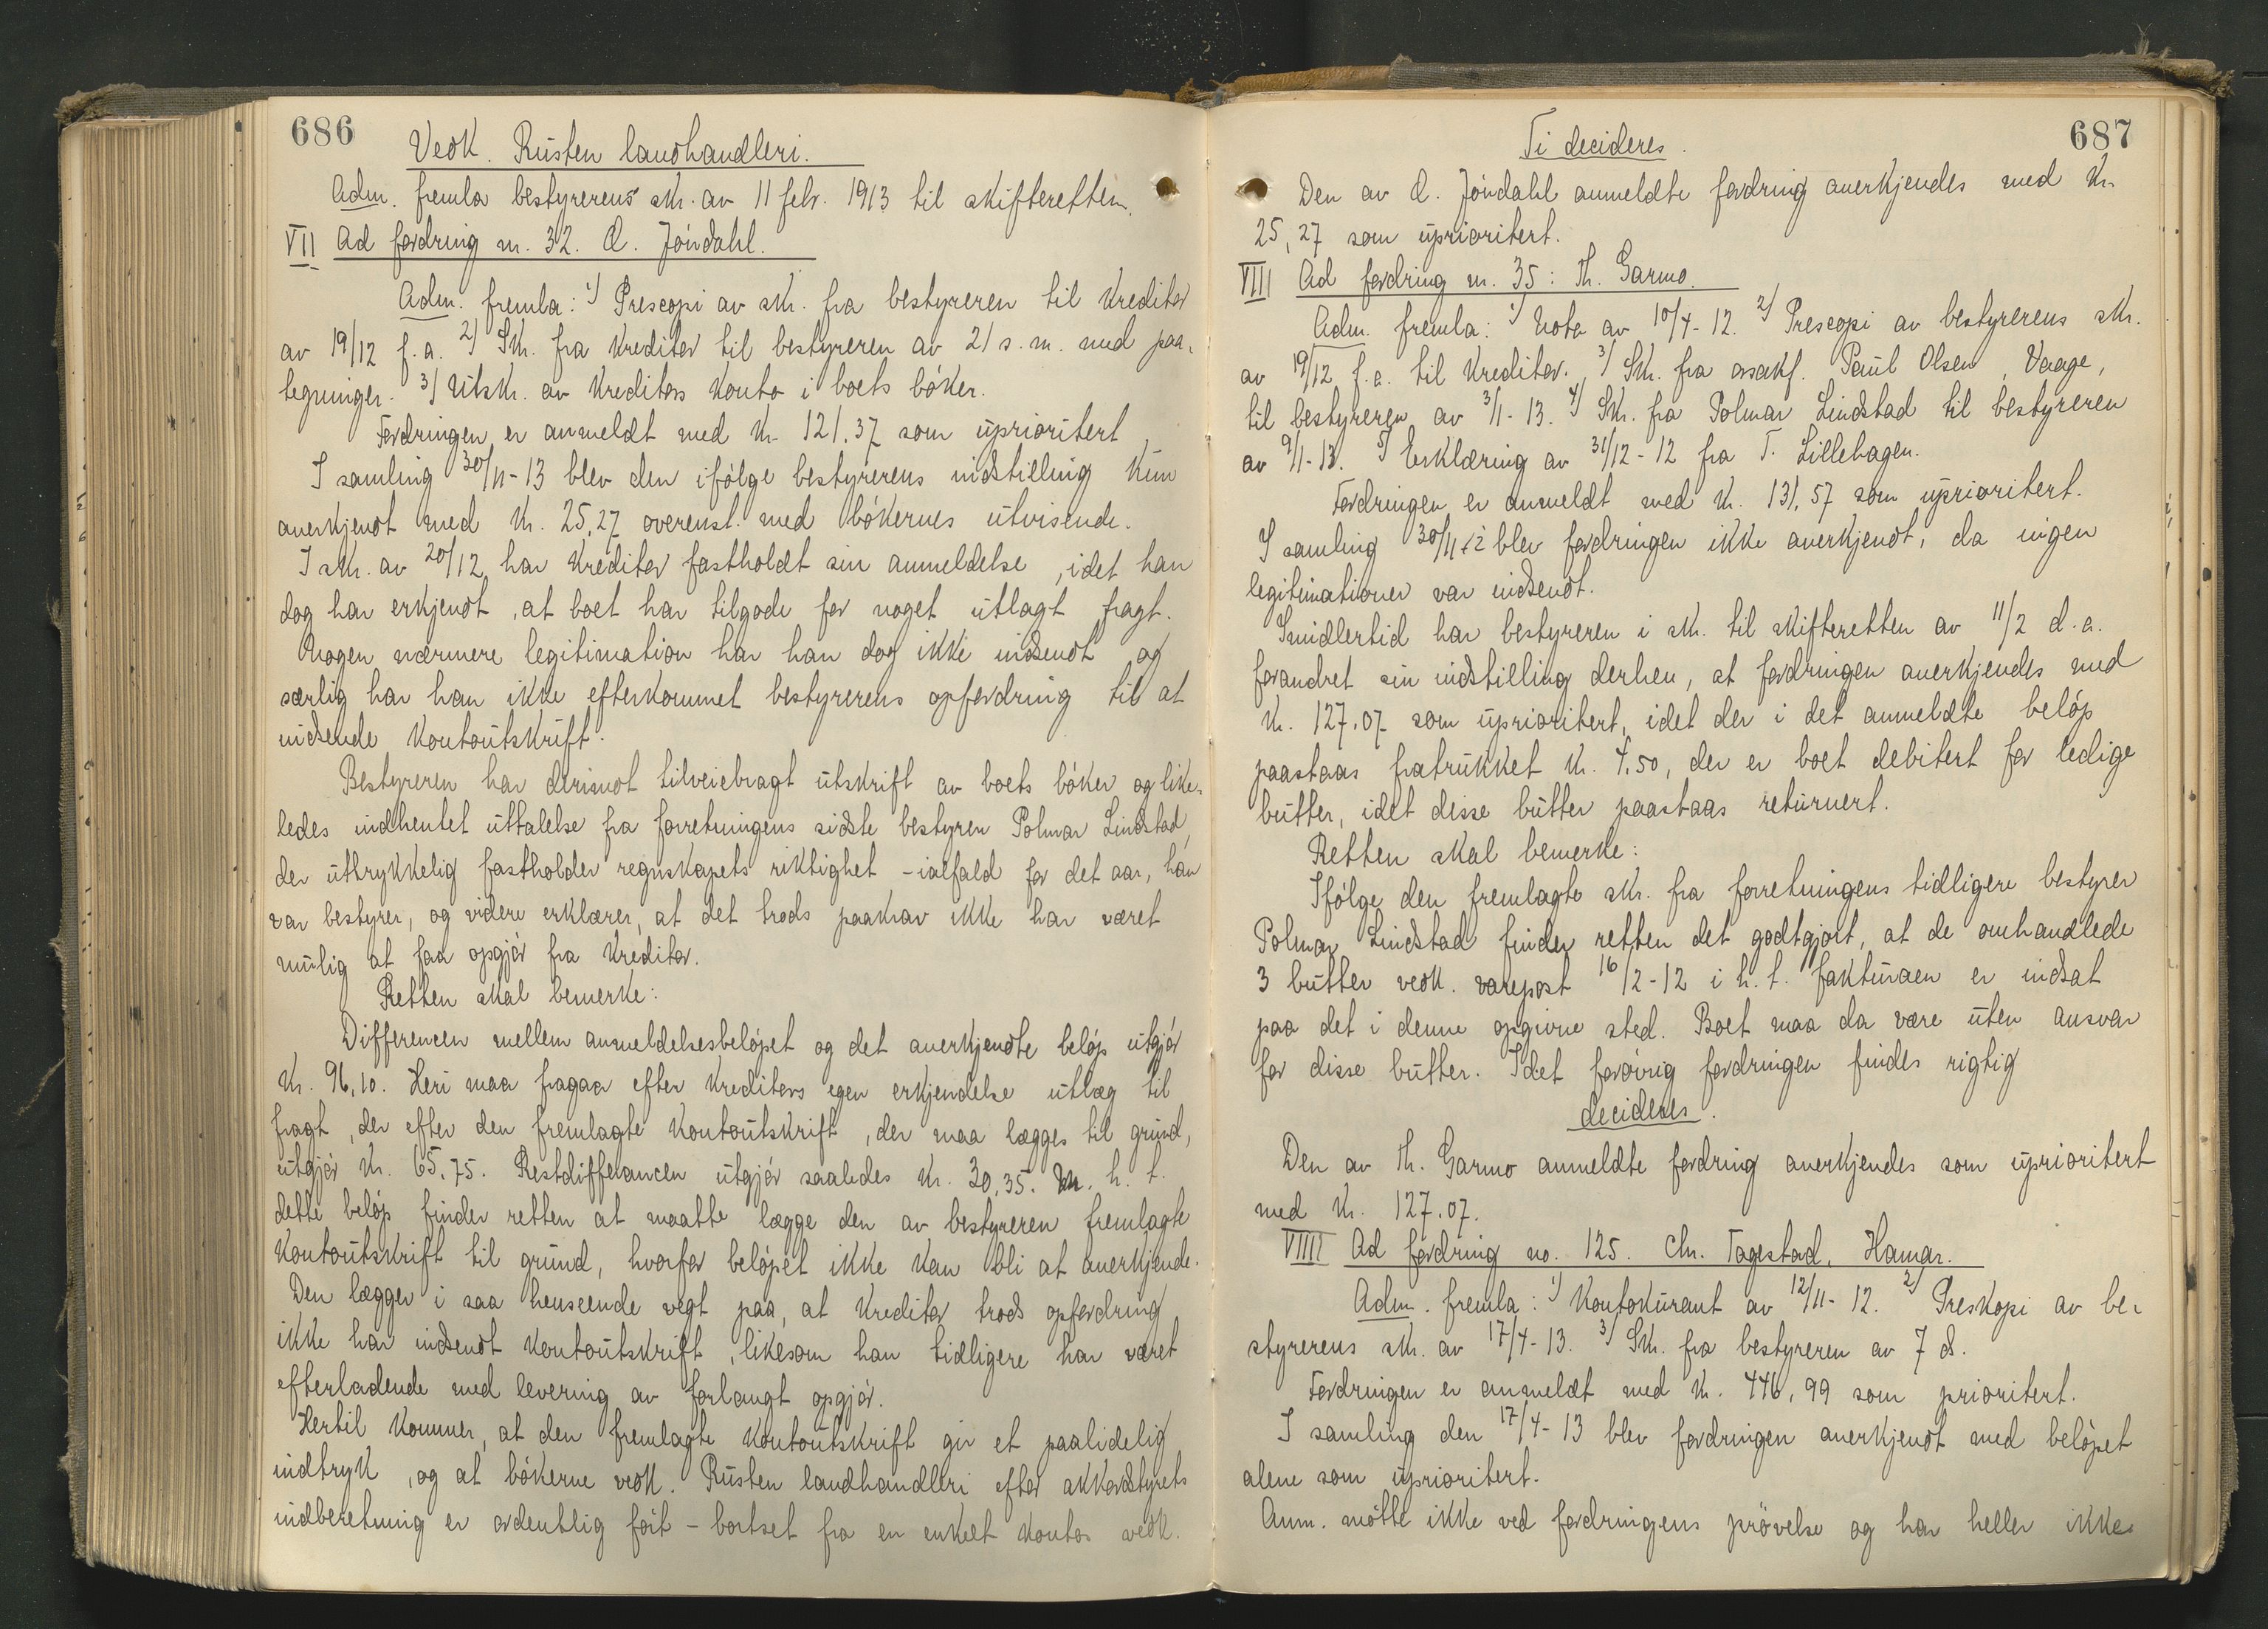 686
Vedk. Rusten landhandleri.
Adm. fremla bestyrerens skr. av 11 febr. 1913 til skifteretten.
VII Ad fordring nr. 32. O. Jöndahl.
Adm. fremla: 1) Prescopi av skr. fra bestyreren til kreditor
av 19/12 f.a. 2) Skr. fra kreditor til bestyreren av 21 s.m. med paa-
tegninger. 3) Utskr. av kreditors konto i boets böker.
Fordringen er anmeldt med kr. 121.37 som uprioritert.
I samling 30/11-13 blev den ifölge bestyrerens indstilling kun
anerkjendt med kr. 25,27 overenst. med bökernes utvisende.
I skr. av 20/12 har kreditor fastholdt sin anmeldelse, idet han
dog har erkjendt, at boet har tilgode for noget utlagt fragt.
Nogen nærmere legitimation har han dog ikke indsendt og
særlig har han ikke efterkommet bestyrerens opfordring til at
indsende kontoutskrift.
Bestyreren har derimot tilveiebragt utskrift av boets böker og like-
ledes indhentet uttalelse fra forretningens sidste bestyrer Polmar Lindstad,
der uttrykkelig fastholder regnskapets riktighet - ialfald for det aar, han
var bestyrer, og videre erklærer, at det trods paakrav ikke har været
mulig at faa opgjör fra kreditor.
Retten skal bemerke:
Differencen mellem anmeldelsesbelöpet og det anerkjendte belöp utgjör
kr. 96,10. Heri maa fragaa efter kreditors egen erkjendelse utlæg til
fragt, der efter den fremlagte kontoutskrift, der maa lægges til grund,
utgjör kr. 65.75. Restdifferancen utgjör saaledes kr. 30,35. M. h. t.
dette belöp finder retten at maatte lægge den av bestyreren fremlagte
kontoutskrift til grund, hvorfor belöpet ikke kan bli at anerkjende.
Den lægger i saa henseende vegt paa, at kreditor trods opfordring
ikke har indsendt kontoutskrift, likesom han tidligere har været
efterladende med levering av forlangt opgjör.
Hertil kommer, at den fremlagte kontoutskrift gir et paalidelig
indtryk, og at bökerne vedk. Rusten landhandleri efter akkordstyrets
indberetning er ordentlig fört - bortset fra en enkelt konto vedk.
687
Ti decideres.
Den av O. Jöndahl anmeldte fordring anerkjendes med kr.
25,27 som uprioritert.
VIII Ad fordring nr. 35: Th. Garmo.
Adm. fremla: 1) Nota av 10/4-12. 2) Prescopi av bestyrerens skr.
av 19/12 f.a. til kreditor. 3) Skr. fra orsakf. Paul Olsen, Vaage,
til bestyreren av 3/1-13. 4) Skr. fra Polmar Lindstad til bestyreren
av 9/1-13. 5) Erklæring av 31/12-12 fra T. Lillehagen.
Fordringen er anmeldt med kr. 131,57 som uprioritert.
I samling 30/11-12 blev fordringen ikke anerkjendt, da ingen
legitimationer var indsendt.
Imidlertid har bestyreren i skr. til skifteretten av 11/2 d.a.
forandret sin indstilling derhen, at fordringen anerkjendes med
kr. 127.07 som uprioritert, idet der i det anmeldte belöp
paastaas fratrukket kr. 4,50, der er boet debitert for ledige
butter, idet disse butter paastaas returnert.
Retten skal bemerke:
Ifölge den fremlagte skr. fra forretningens tidligere bestyrer
Polmar Lindstad finder retten det godtgjort, at de omhandlede
3 butter vedk. varepost 16/2-12 i h. t. fakturaen er indsat
paa det i denne opgivne sted. Boet maa da være uten ansvar
for disse butter. Idet forövrig fordringen findes rigtig
decideres.
Den av Th. Garmo anmeldte fordring anerkjendes som uprioritert
med kr. 127.07.
VIIII Ad fordring no. 125. Chr. Tagestad, Hamar.
Adm. fremla: 1) Kontokurant av 12/11-12. 2) Preskopi av be-
styrerens skr. av 17/4-13. 3) Skr. fra bestyreren av 7 ds.
Fordringen er anmeldt med kr. 446,99 som prioritert.
I samling den 17/4-13 blev fordringen anerkjendt med belöpet
alene som uprioritert.
Anm. mötte ikke ved fordringens prövelse og har heller ikke